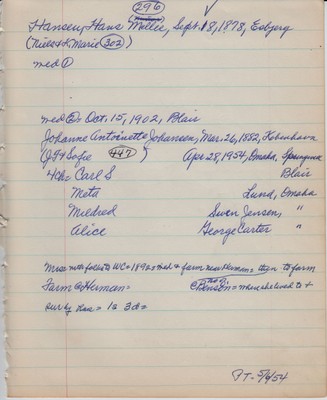 296
Hansen, Hans Moller, Sept. 18, 1878, Esbjerg
(Niels & K Marie 302)
med ①
med ②= Oct. 15, 1902, Blair
Johanne Antoinette Johansen, Mar. 26, 1882, Kobenhavn
(J F & Sofie 447) Apr 28, 1954, Omaha, Springwa
4 ch= Carl S Blair
Meta Lund, Omaha
Mildred Swen Jensen, "
Alice George Carter "
WC= 1896 + Neb & farm near Herman= then to farm
Farm @ Herman= Benson= where she lived to +
Surby Hus= 1s 3d=
PT- 5/6/54